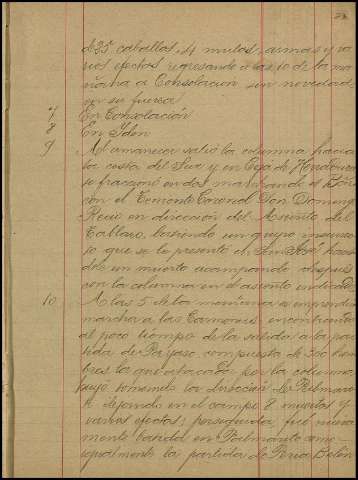 de 35 caballos, 4 mulos, armas y va
rios efectos regresando a las 10 de la ma
ñana a Consolacion sin novedad
en su fuerza
7 En Consolación
8 En Idem
9 Al amanecer salió la columna hacia
la costa del Sur y en
se fraccionó en dos marchando el
con el Teniente Coronel Don Domingo
Recio en dirección del Asiento del
batiendo un grupo insurrec
to que se le presentó en San José hacien
dole un muerto acampando despues
con la columna en el asiento indicado
10 A las 5 de la mañana se emprendió
marcha a las encontrando
al poco tiempo de la salida a la par
tida de Payaso compuesta de 300 hom
bres la que atacada por la columna
huyó tomando la dirección de
dejando en el campo 8 muertos y
varios efectos; perseguida, fué nueva
mente batida en como
igualmente la partida de Perico